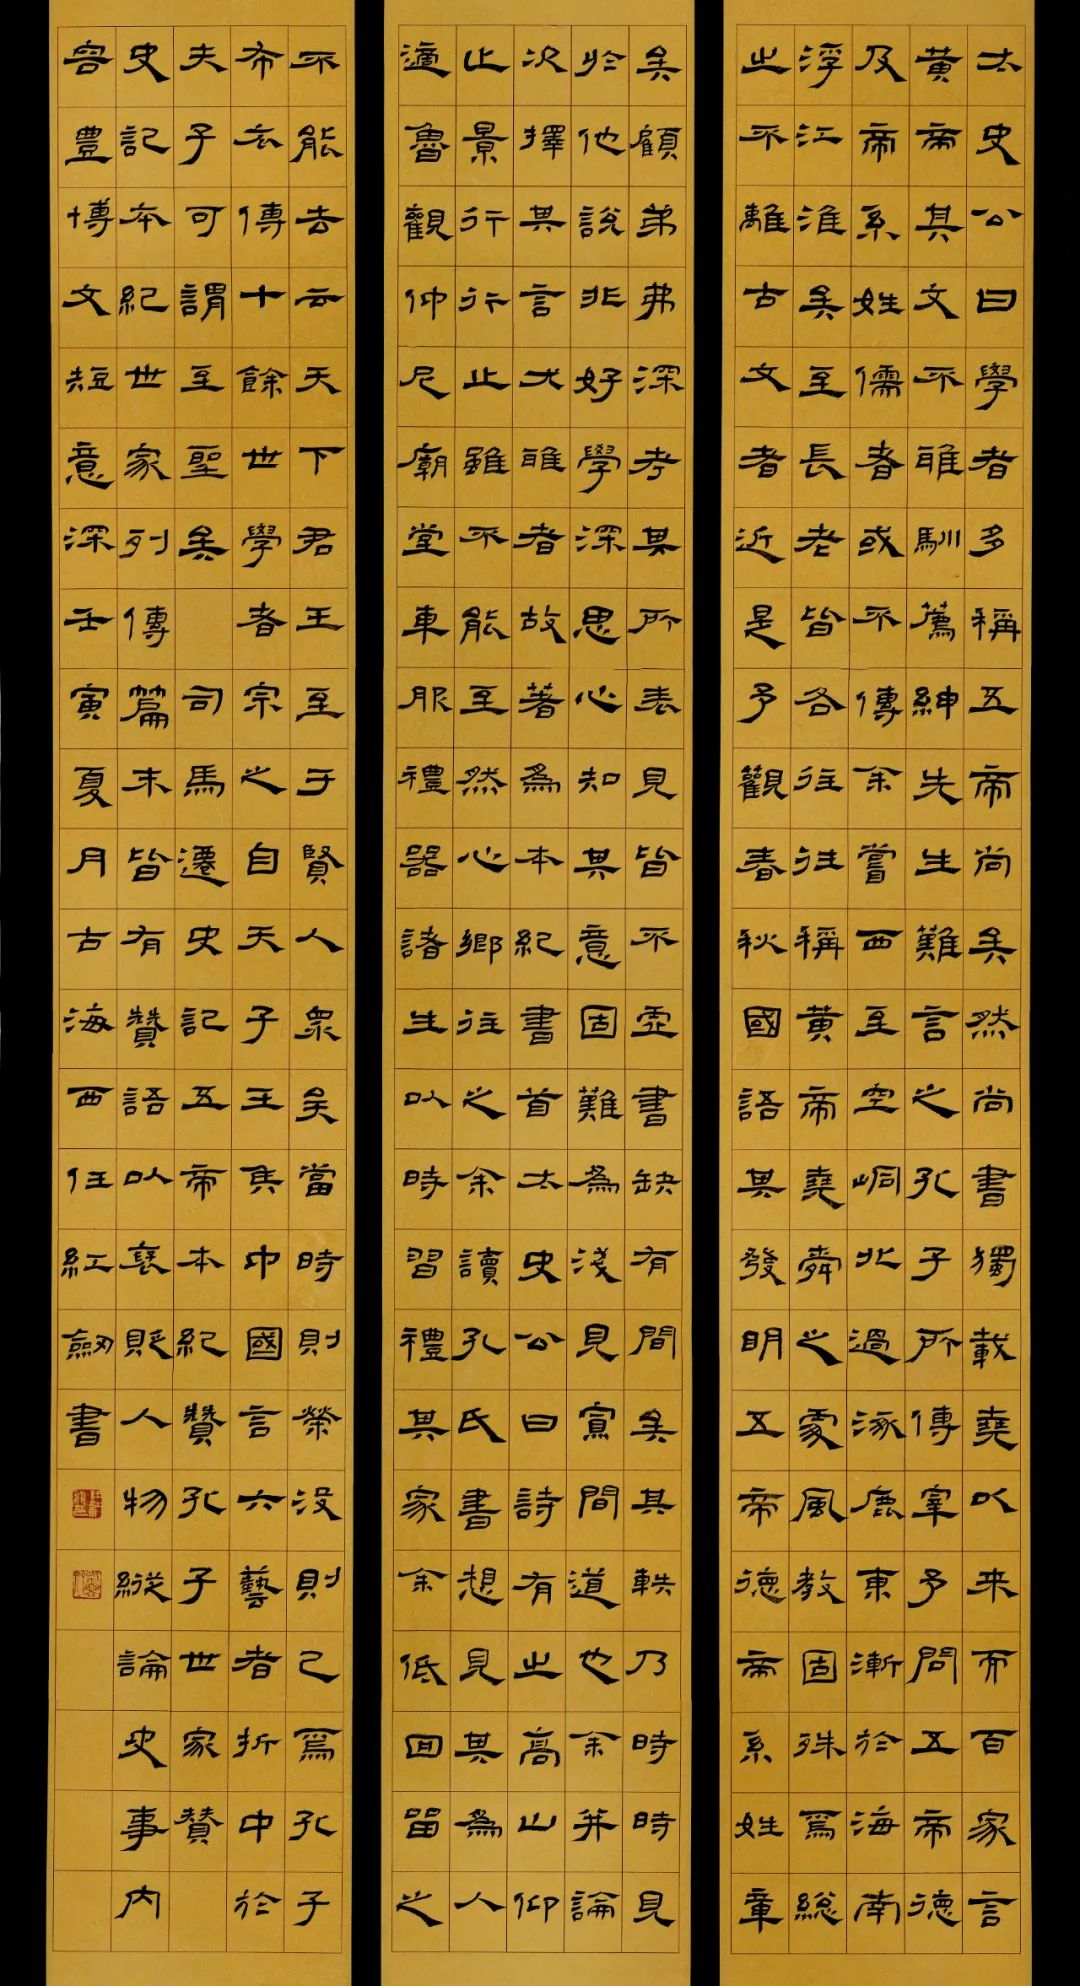 太史公曰學者多稱五帝尚矣然尚書獨載堯以來而百家言
黃帝其文不雅馴薦紳先生難言之孔子所傳宰予問五帝德
及帝系姓儒者或不傳余嘗西至空峒北過涿鹿東漸於海南
浮江淮矣至長老皆各往往稱黃帝堯舜之處風教固殊焉總
之不離古文者近是予觀春秋國語其發明五帝德帝系姓章
矣顧弟弗深考其所表見皆不虛書缺有間矣其軼乃時時見
於他說非好學深思心知其意固難為淺見寡聞道也余并論
次擇其言尤雅者故著為本紀書首太史公曰詩有之高山仰
止景行行止雖不能至然心鄉往之余讀孔氏書想見其為人
適魯觀仲尼廟堂車服禮器諸生以時習禮其家余低回留之
不能去云天下君王至于賢人眾矣當時則榮沒則已焉孔子
布衣傳十餘世學者宗之自天子王侯中國言六藝者折中於
夫子可謂至聖矣 司馬遷史記五帝本紀贊孔子世家贊
史記本紀世家列傳篇末皆有贊語以褒貶人物縱論史事內
容豐博文短意深壬寅夏月古海西任紅劍書